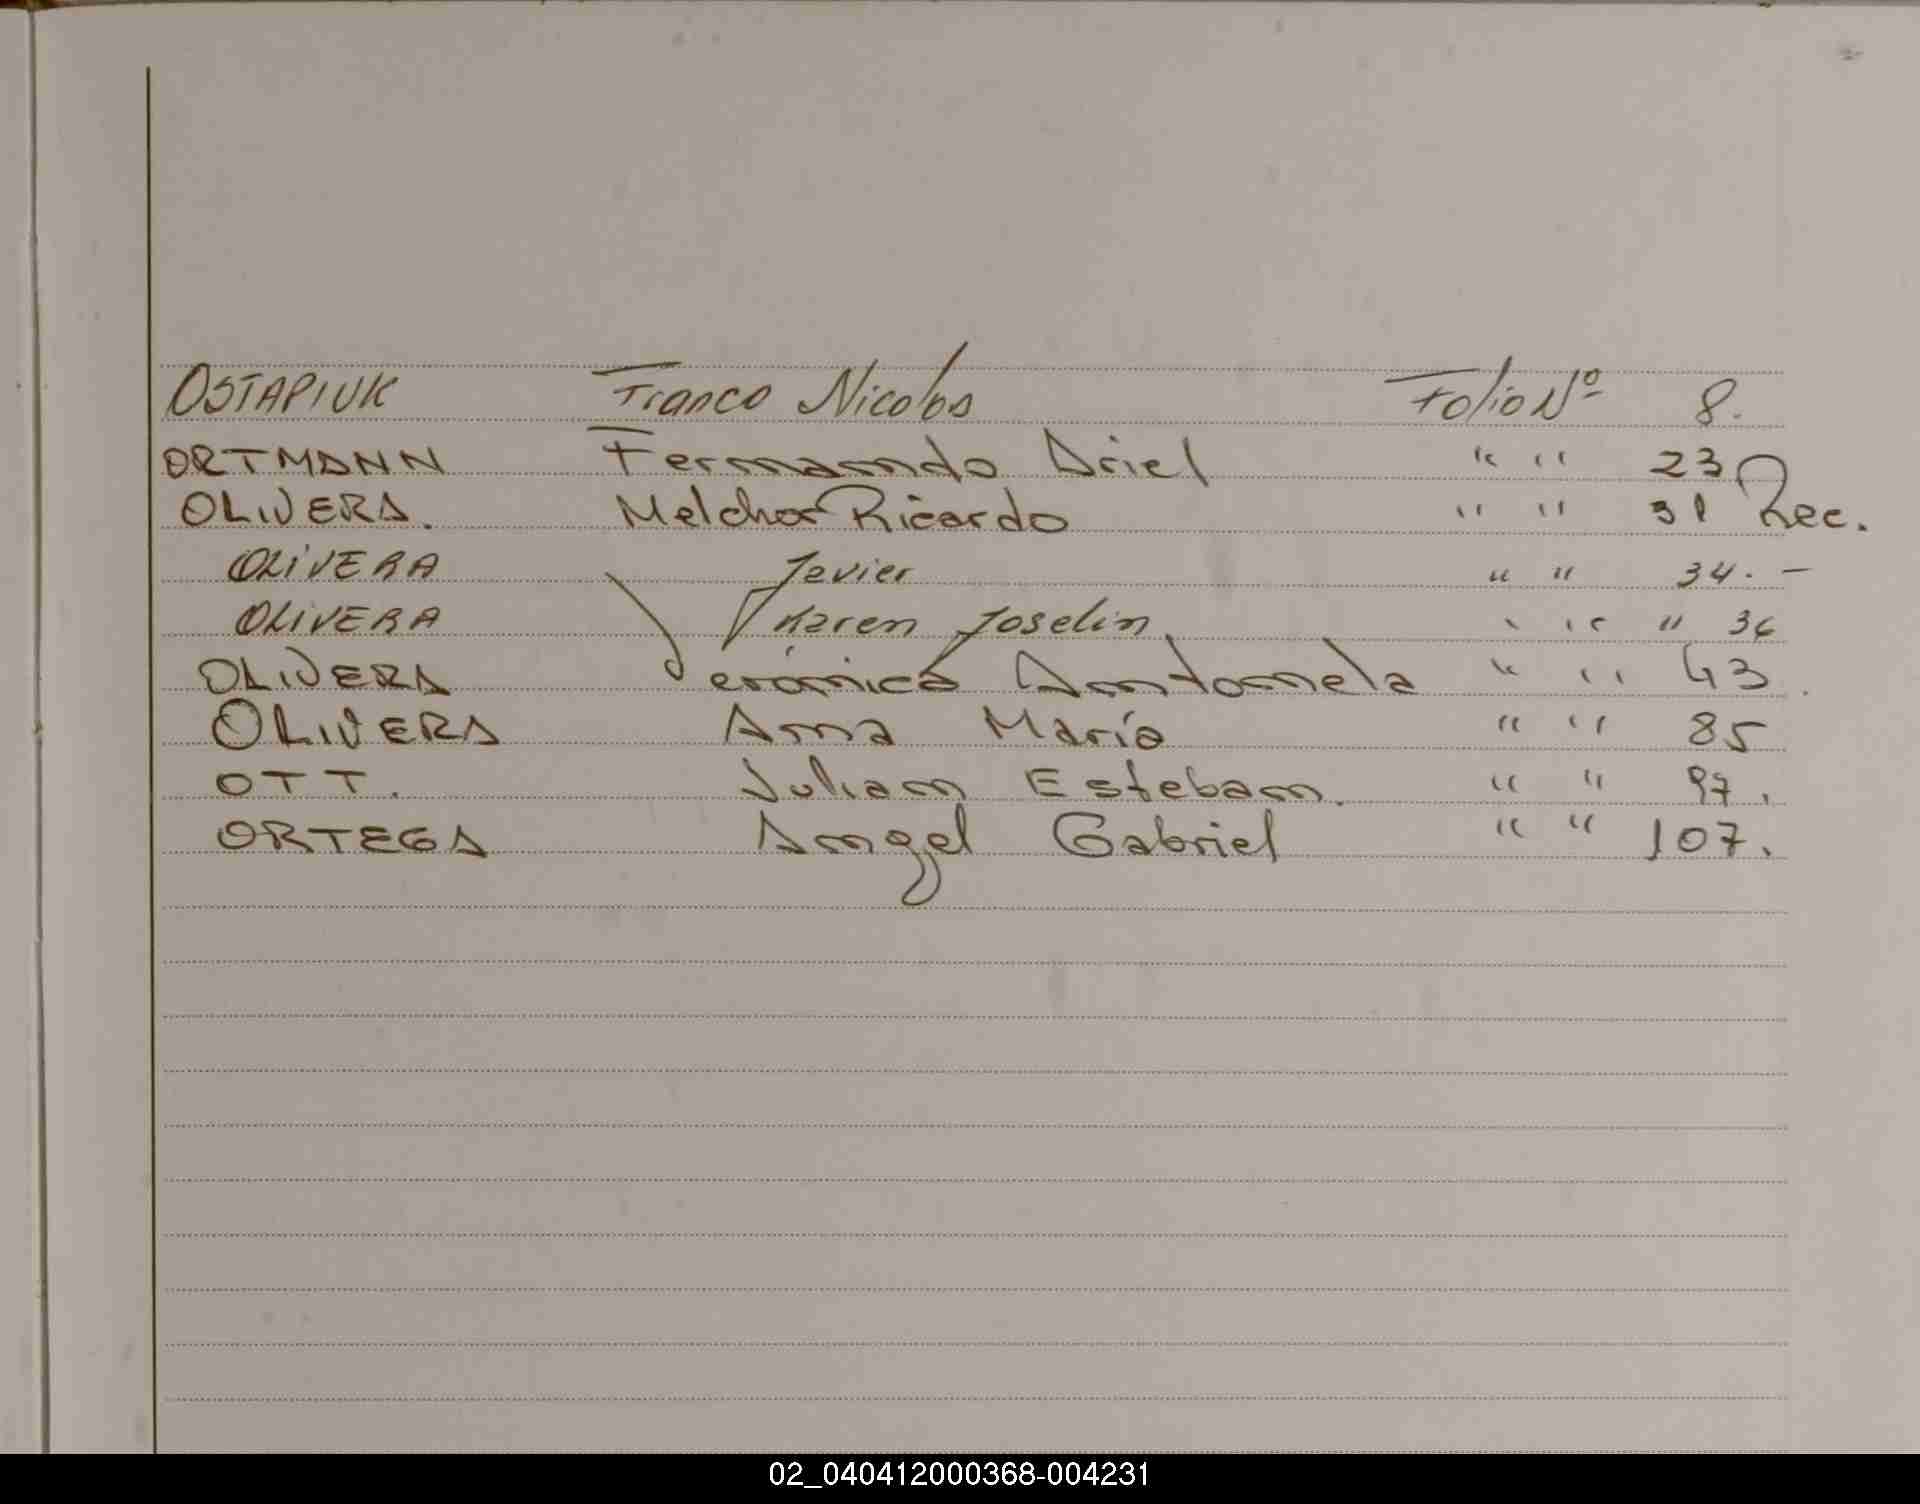 OSTAPIUK Franco Nicolas Folio Nº 8.
ORTMANN Fernando Ariel " " 23
OLIVERA. Melchor Ricardo " " 31 Rec.
OLIVERA Javier " " 34. -
OLIVERA Karen Joselin " " " 36
OLIVERA Verónica Antonela " " 43.
OLIVERA Ana María " " 85
OTT. Julian Esteban. " " 97.
ORTEGA Angel Gabriel " " 107.
02_040412000368-004231